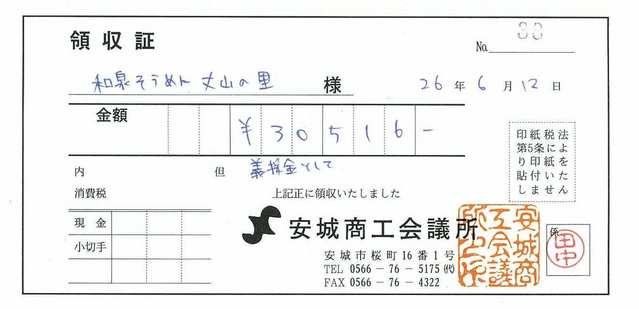 領収証
No. 80
和泉そうめん 丈山の里 様
26年6月12日
金額 ¥30516-
内 但 義援金として
消費税 上記正に領収いたしました
現金
小切手
印紙税法
第5条によ
り印紙を
貼付いた
しません
安城商工会議所
安城市桜町16番1号
TEL 0566-76-5175㈹
FAX 0566-76-4322
安城商
工会議
所之印
係
田中